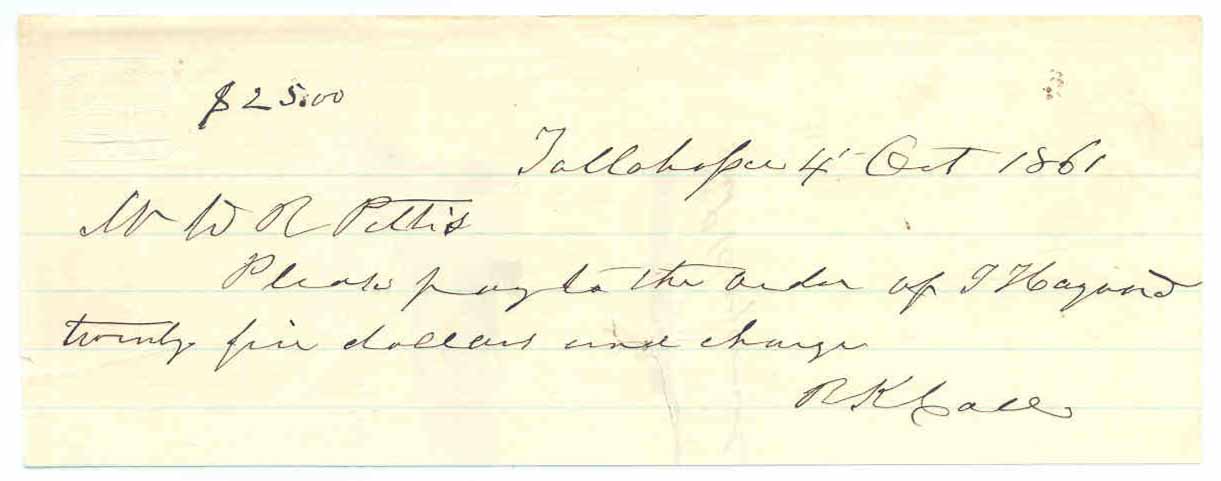 $25.00
Tallahassee 4 Oct 1861
Mr W R Pettis
Please pay to the order of T Hayward
twenty five dollars and charge
R K Call